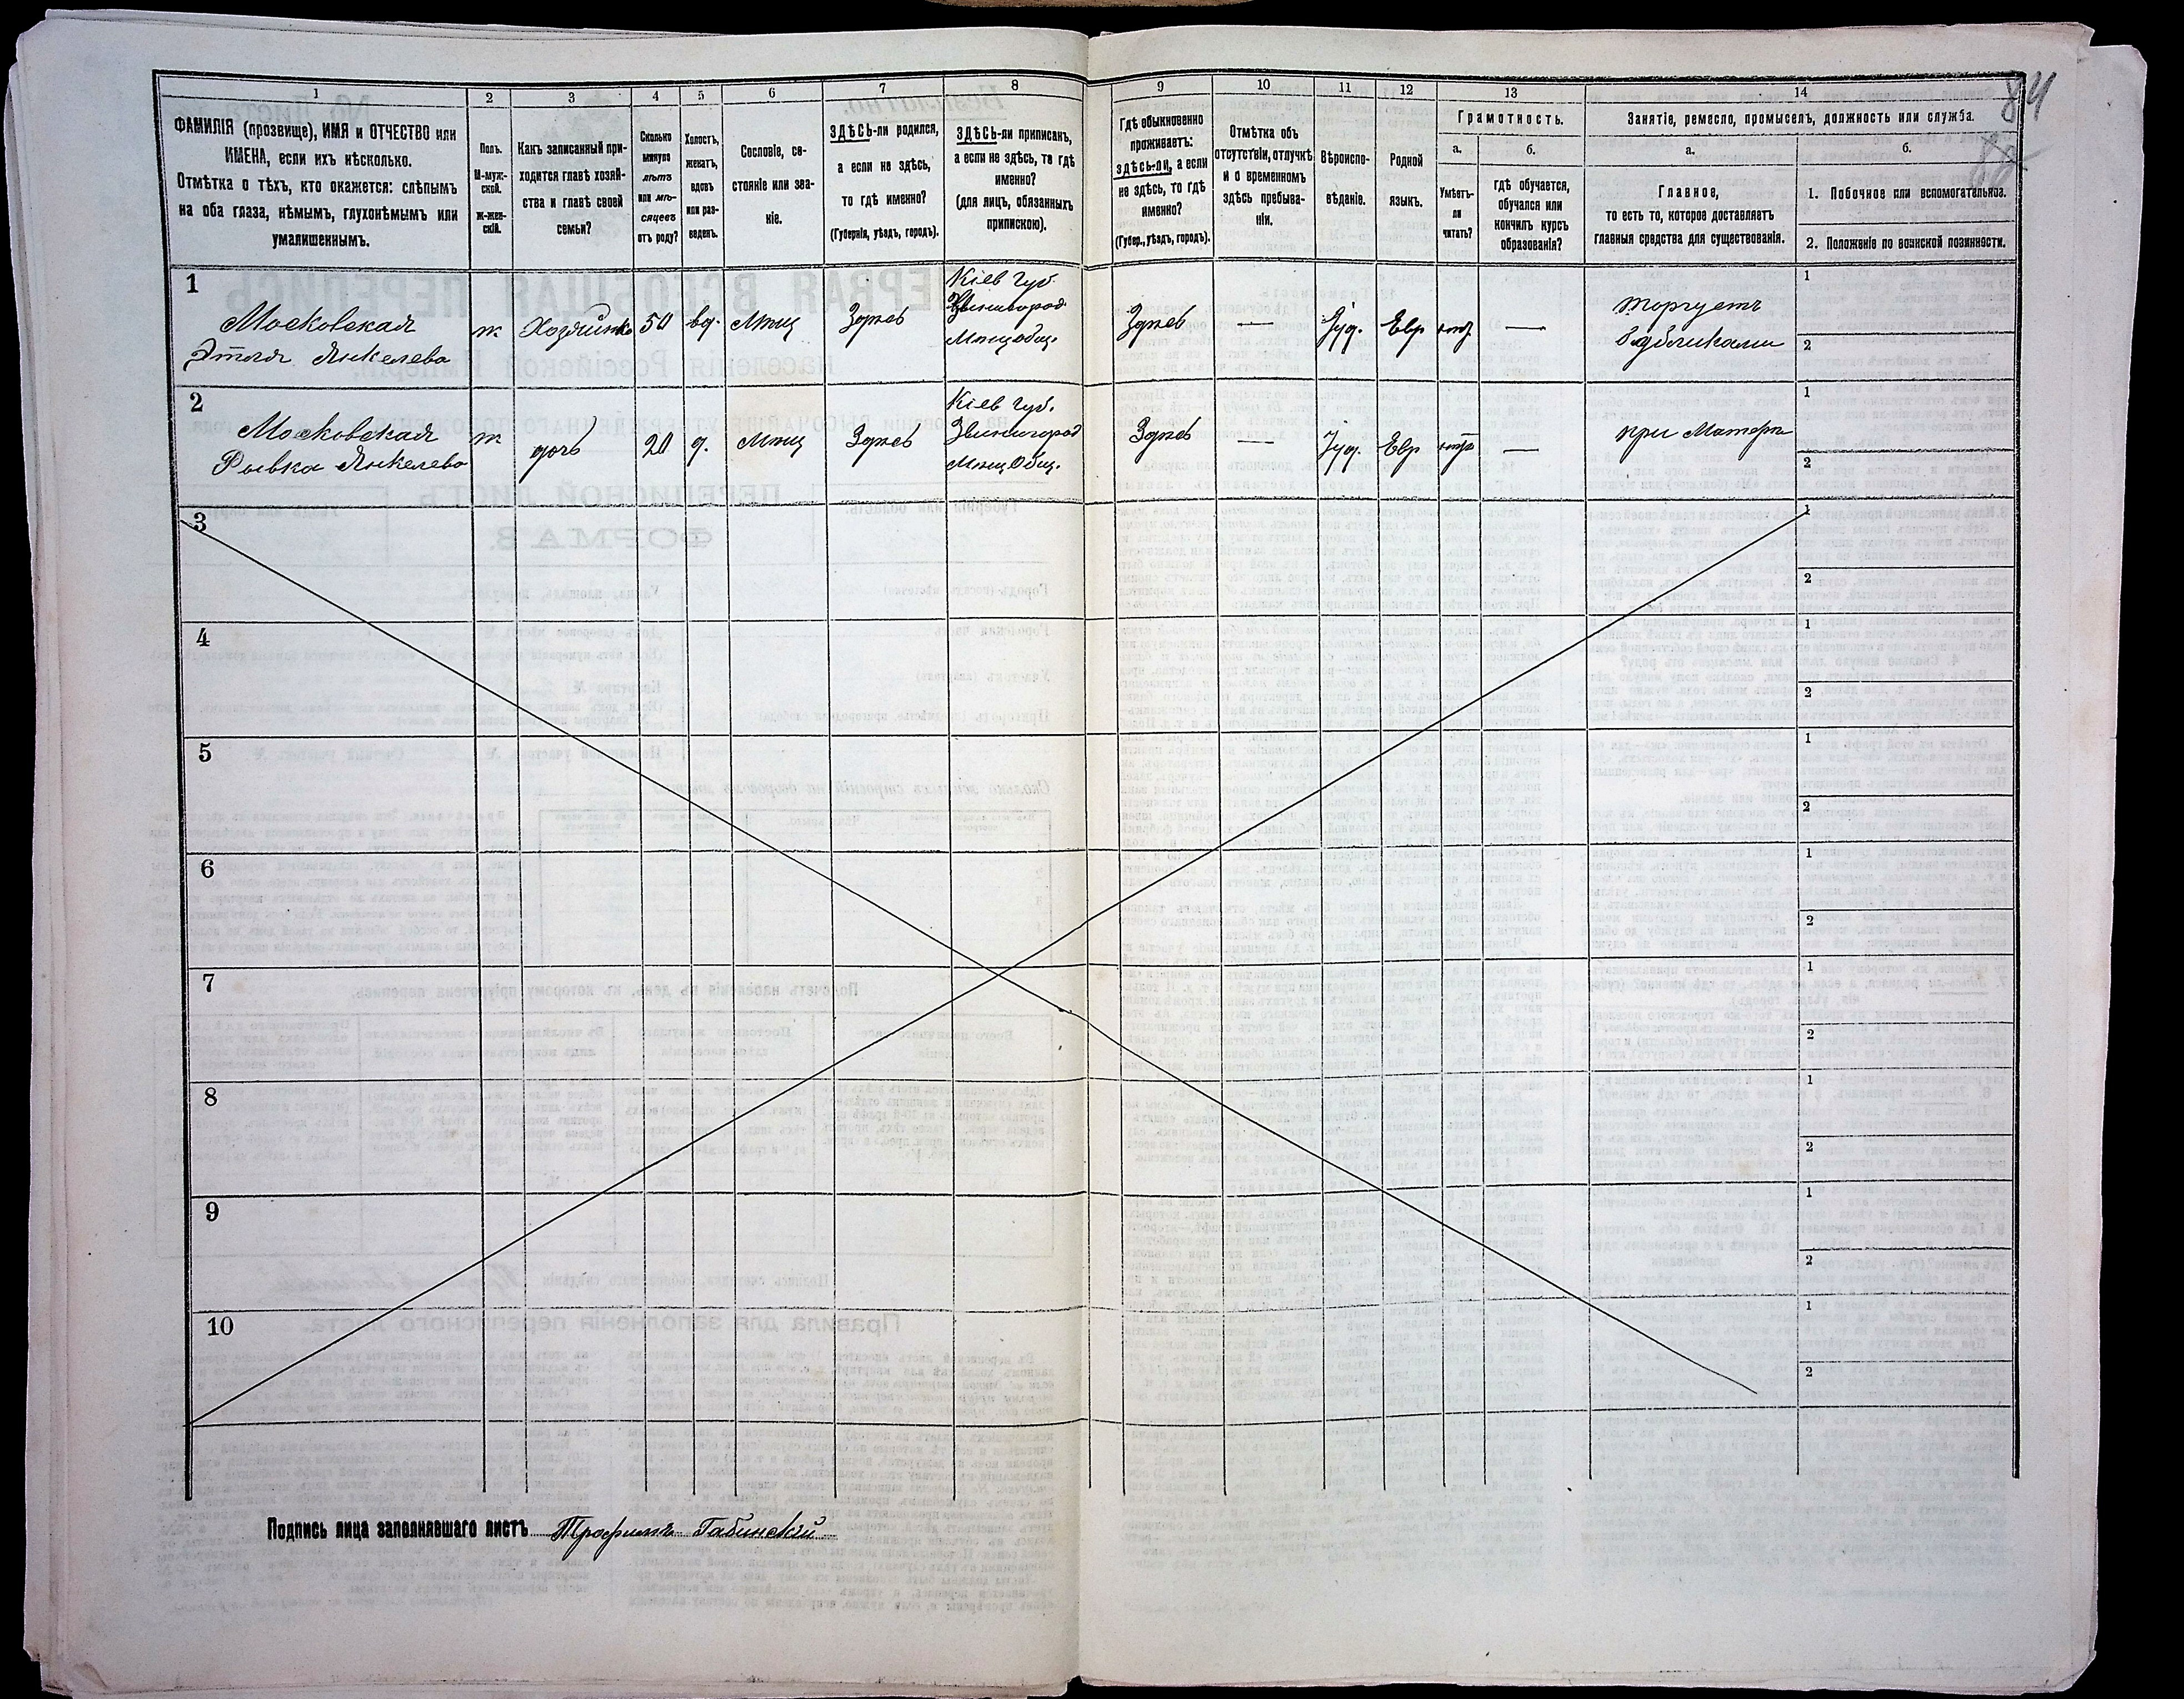 1
2
3
4
5
6
7
8
9
10
11
12
13
14
84
ФАМИЛІЯ (прозвище), ИМЯ и ОТЧЕСТВО или
ИМЕНА, если ихъ нѣсколько.
Отмѣтка о тѣхъ, кто окажется: слѣпымъ
на оба глаза, нѣмымъ, глухонѣмымъ или
умалишеннымъ.
Полъ.
М-муж-
ской.
Ж-жен-
скій.
Какъ записанный при-
ходится главѣ хозяй-
ства и главѣ своей
семьи?
Сколько
минуло
лѣтъ
или мѣ-
сяцевъ
отъ роду?
Холостъ,
женатъ,
вдовъ
или раз-
веденъ.
Сословіе, со-
стояніе или зва-
ніе.
ЗДѢСЬ-ли родился,
а если не здѣсь,
то гдѣ именно?
(Губернія, уѣздъ, городъ).
ЗДѢСЬ-ли приписанъ,
а если не здѣсь, то гдѣ
именно?
(для лицъ, обязанныхъ
припискою).
Гдѣ обыкновенно
проживаетъ:
ЗДѢСЬ-ЛИ, а если
не здѣсь, то гдѣ
именно?
(Губер., уѣздъ, городъ).
Отмѣтка объ
отсутствіи, отлучкѣ
и о временномъ
здѣсь пребыва-
ніи.
Вѣроиспо-
вѣданіе.
Родной
языкъ.
Грамотность.
а.
Умѣетъ-
ли
читать?
б.
гдѣ обучается,
обучался или
кончилъ курсъ
образованія?
Занятіе, ремесло, промыселъ, должность или служба.
а.
Главное,
то есть то, которое доставляетъ
главныя средства для существованія.
б.
1. Побочное или вспомогательное.
2. Положеніе по воинской повинности.
1
Московская
Этля Янкелева
ж
Хозяйка
50
вд.
Мѣщ
Здѣсь
Кіев Губ.
Звенигород.
Мѣщ общ.
Здѣсь
—
Іуд.
Евр
нѣтъ
—
торгуетъ
бубликами
1
2
2
Московская
Рывка Янкелева
ж
дочь
20
д.
Мѣщ
Здѣсь
Кіев Губ.
Звенигород
Мѣщ Общ.
Здѣсь
—
Іуд.
Евр
нѣтъ
—
при Матери
1
2
3
1
2
4
1
2
5
1
2
6
1
2
7
1
2
8
1
2
9
1
2
10
1
2
Подпись лица заполнявшаго листъ Трофимъ Габинскій